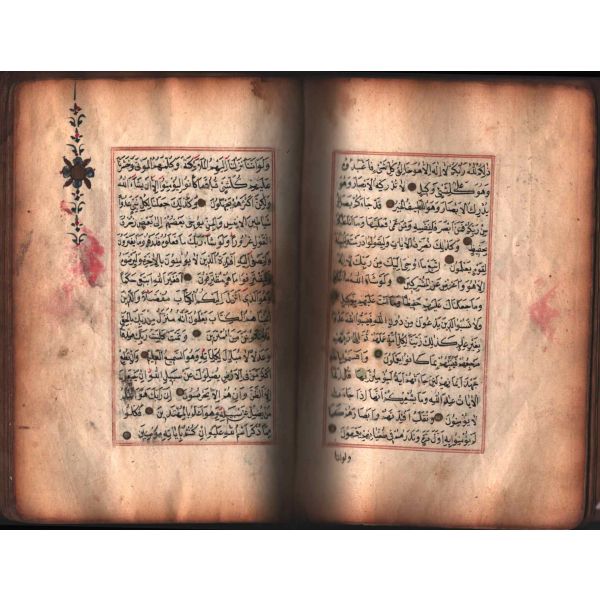 ذلكم الله ربكم لا اله الا هو خالق كل شئ فاعبدوه
وهو على كل شئ وكيل لا تدركه الابصار وهو
يدرك الابصار وهو اللطيف الخبير قد جاءكم بصائر
من ربكم فمن ابصر فلنفسه ومن عمى فعليها وما انا عليكم
بحفيظ وكذلك نصرف الايات وليقولوا درست ولنبينه
لقوم يعلمون اتبع ما اوحى اليك من ربك لا اله
الا هو واعرض عن المشركين ولو شاء الله ما اشركوا
وما جعلناك عليهم حفيظا وما انت عليهم بوكيل
ولا تسبوا الذين يدعون من دون الله فيسبوا الله عدوا
بغير علم كذلك زينا لكل امة عملهم ثم الى ربهم
مرجعهم فينبئهم بما كانوا يعملون واقسموا بالله
جهد ايمانهم لئن جاءتهم اية ليؤمنن بها قل انما
الايات عند الله وما يشعركم انها اذا جاءت
لا يؤمنون ونقلب افئدتهم وابصارهم كما
لم يؤمنوا به اول مرة ونذرهم في طغيانهم يعمهون
ولو اننا
ولو اننا نزلنا اليهم الملئكة وكلمهم الموتى وحشرنا
عليهم كل شئ قبلا ما كانوا ليؤمنوا الا ان يشاء الله
ولكن اكثرهم يجهلون وكذلك جعلنا لكل نبى عدوا
شياطين الانس والجن يوحى بعضهم الى بعض زخرف
القول غرورا ولو شاء ربك ما فعلوه فذرهم وما يفترون
ولتصغى اليه افئدة الذين لا يؤمنون بالاخرة وليرضوه
وليقترفوا ما هم مقترفون افغير الله ابتغى حكما
وهو الذى انزل اليكم الكتاب مفصلا والذين
اتيناهم الكتاب يعلمون انه منزل من ربك بالحق
فلا تكونن من الممترين وتمت كلمة ربك صدقا
وعدلا لا مبدل لكلماته وهو السميع العليم وان تطع
اكثر من فى الارض يضلوك عن سبيل الله ان يتبعون
الا الظن وان هم الا يخرصون ان ربك هو اعلم
من يضل عن سبيله وهو اعلم بالمهتدين فكلوا
مما ذكر اسم الله عليه ان كنتم باياته مؤمنين